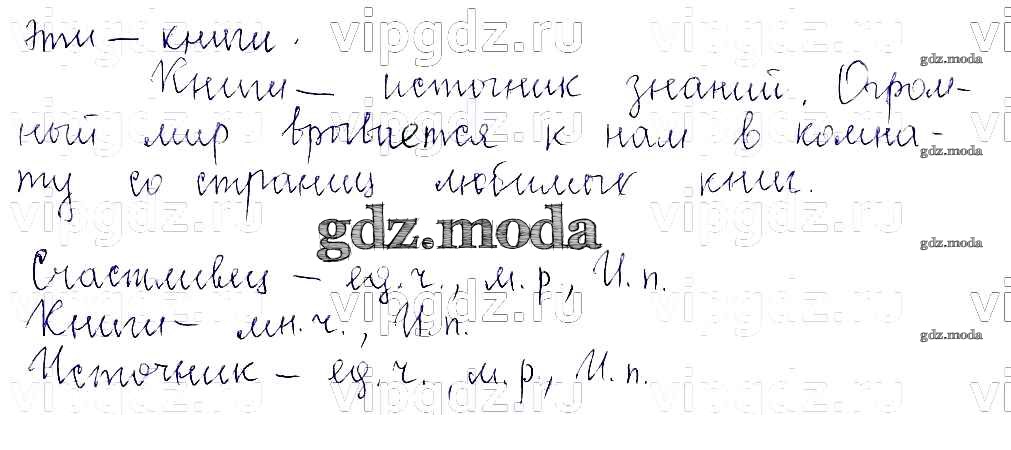 эти — книги.
Книги — источник знаний. Огром-
ный мир врывается к нам в комна-
ту со страниц любимых книг.
gdz.moda
Счастливец — ед.ч., м.р., И.п.
Книги — мн.ч., И.п.
Источник — ед.ч., м.р., И.п.
vipgdz.ru